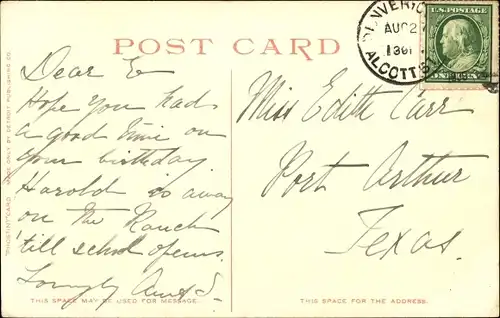 POST CARD
DENVER, CO
AUG 2
ALCOTT S
U.S. POSTAGE
ONE CENT
Dear E
Hope you had
a good time on
your birthday
Harold is away
on the Ranch
'till school opens.
Lovingly Aunt S.
Miss Edith Carr
Port Arthur
Texas.
"PHOSTINT" CARD MADE ONLY BY DETROIT PUBLISHING CO.
THIS SPACE MAY BE USED FOR MESSAGE.
THIS SPACE IS FOR THE ADDRESS.